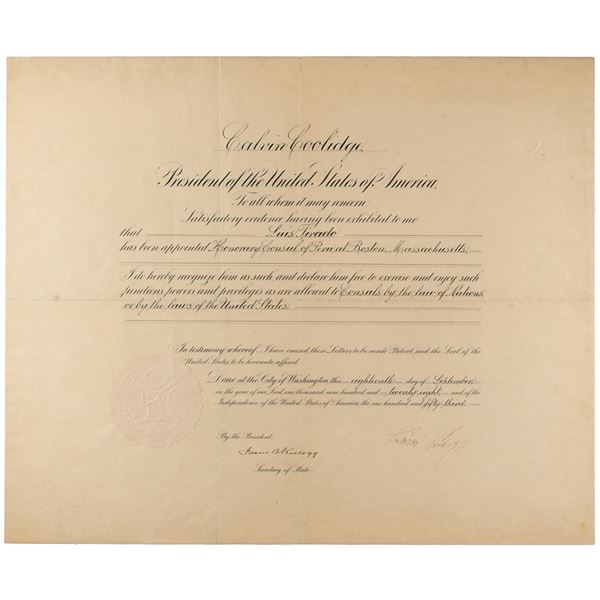 Calvin Coolidge,
President of the United States of America,
To all whom it may concern:
Satisfactory evidence having been exhibited to me
that Luis Tirado
has been appointed Honorary Consul of Peru at Boston, Massachusetts,
I do hereby recognize him as such, and declare him free to exercise and enjoy such
functions, powers and privileges as are allowed to Consuls by the law of Nations
or by the laws of the United States.
In testimony whereof, I have caused these Letters to be made Patent, and the Seal of the
United States to be hereunto affixed.
Done at the City of Washington this eighteenth day of September,
in the year of our Lord one thousand nine hundred and twenty eight, and of the
Independence of the United States of America, the one hundred and fifty third.
By the President:
Frank B Kellogg
Secretary of State.